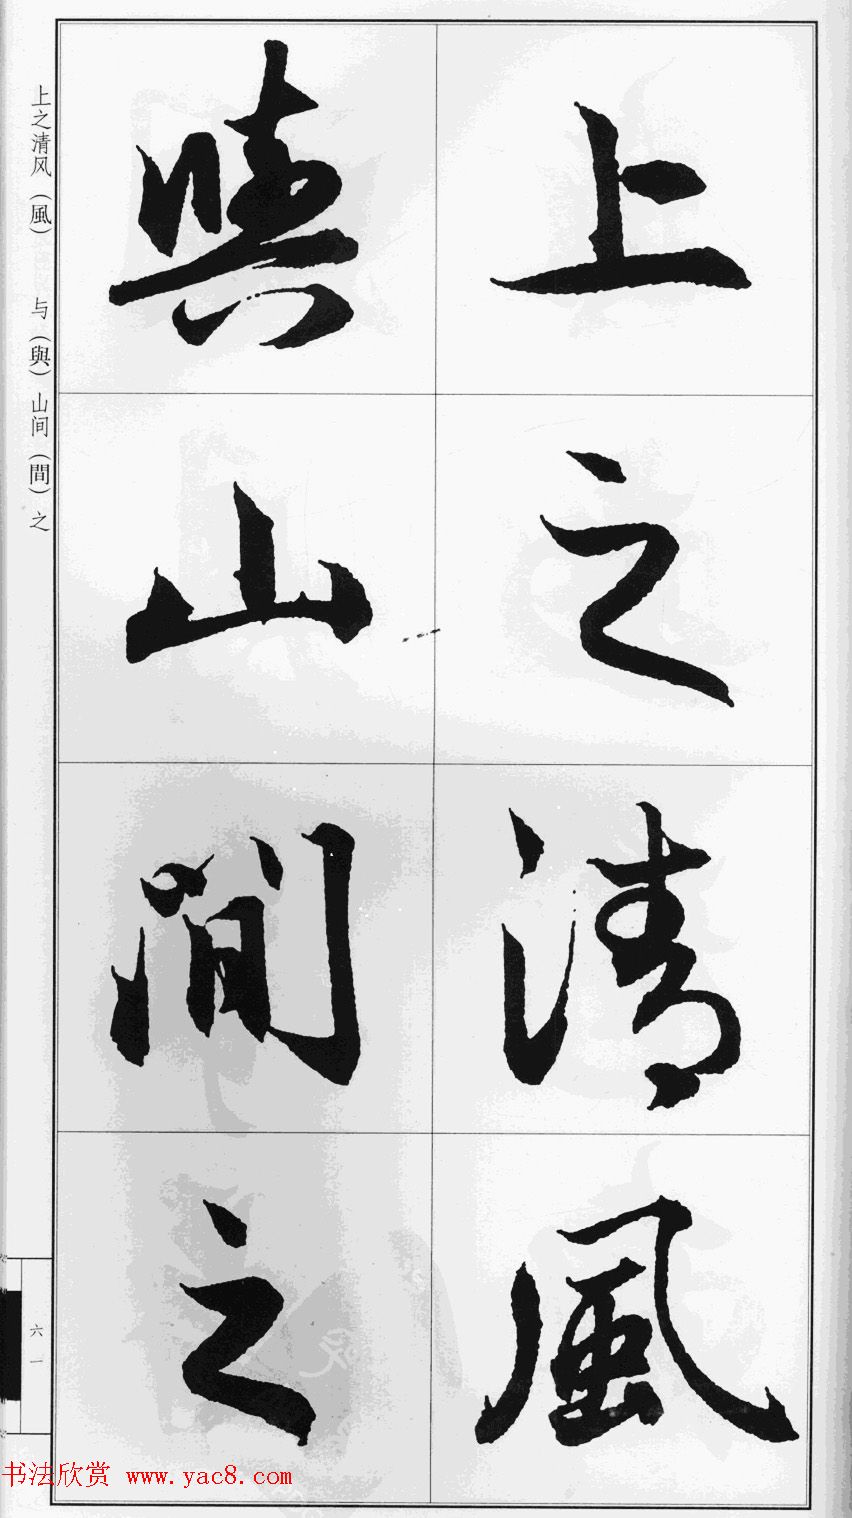 上之清風
與山間之
上之清风（風） 与（與）山间（間）之
六一
书法欣赏 www.yac8.com